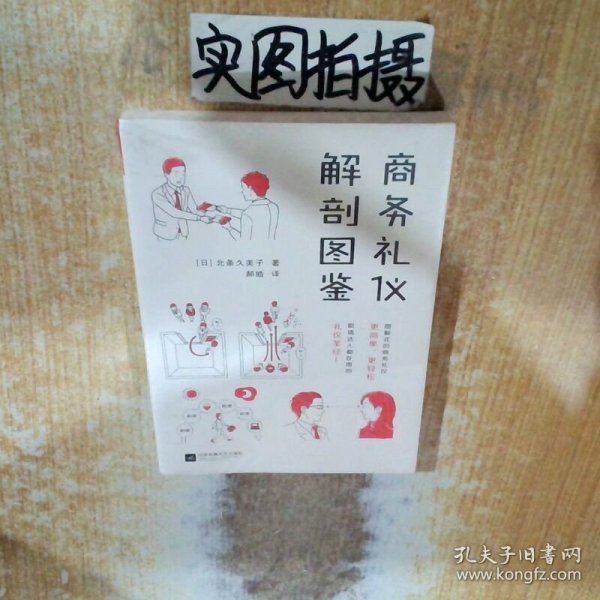 实图拍摄
商务礼仪
解剖图鉴
[日] 北条久美子 著
郝皓 译
图解式的商务礼仪
更简单 更轻松
职场达人都在用的
礼仪圣经！
孔夫子旧书网
www.kongfz.com